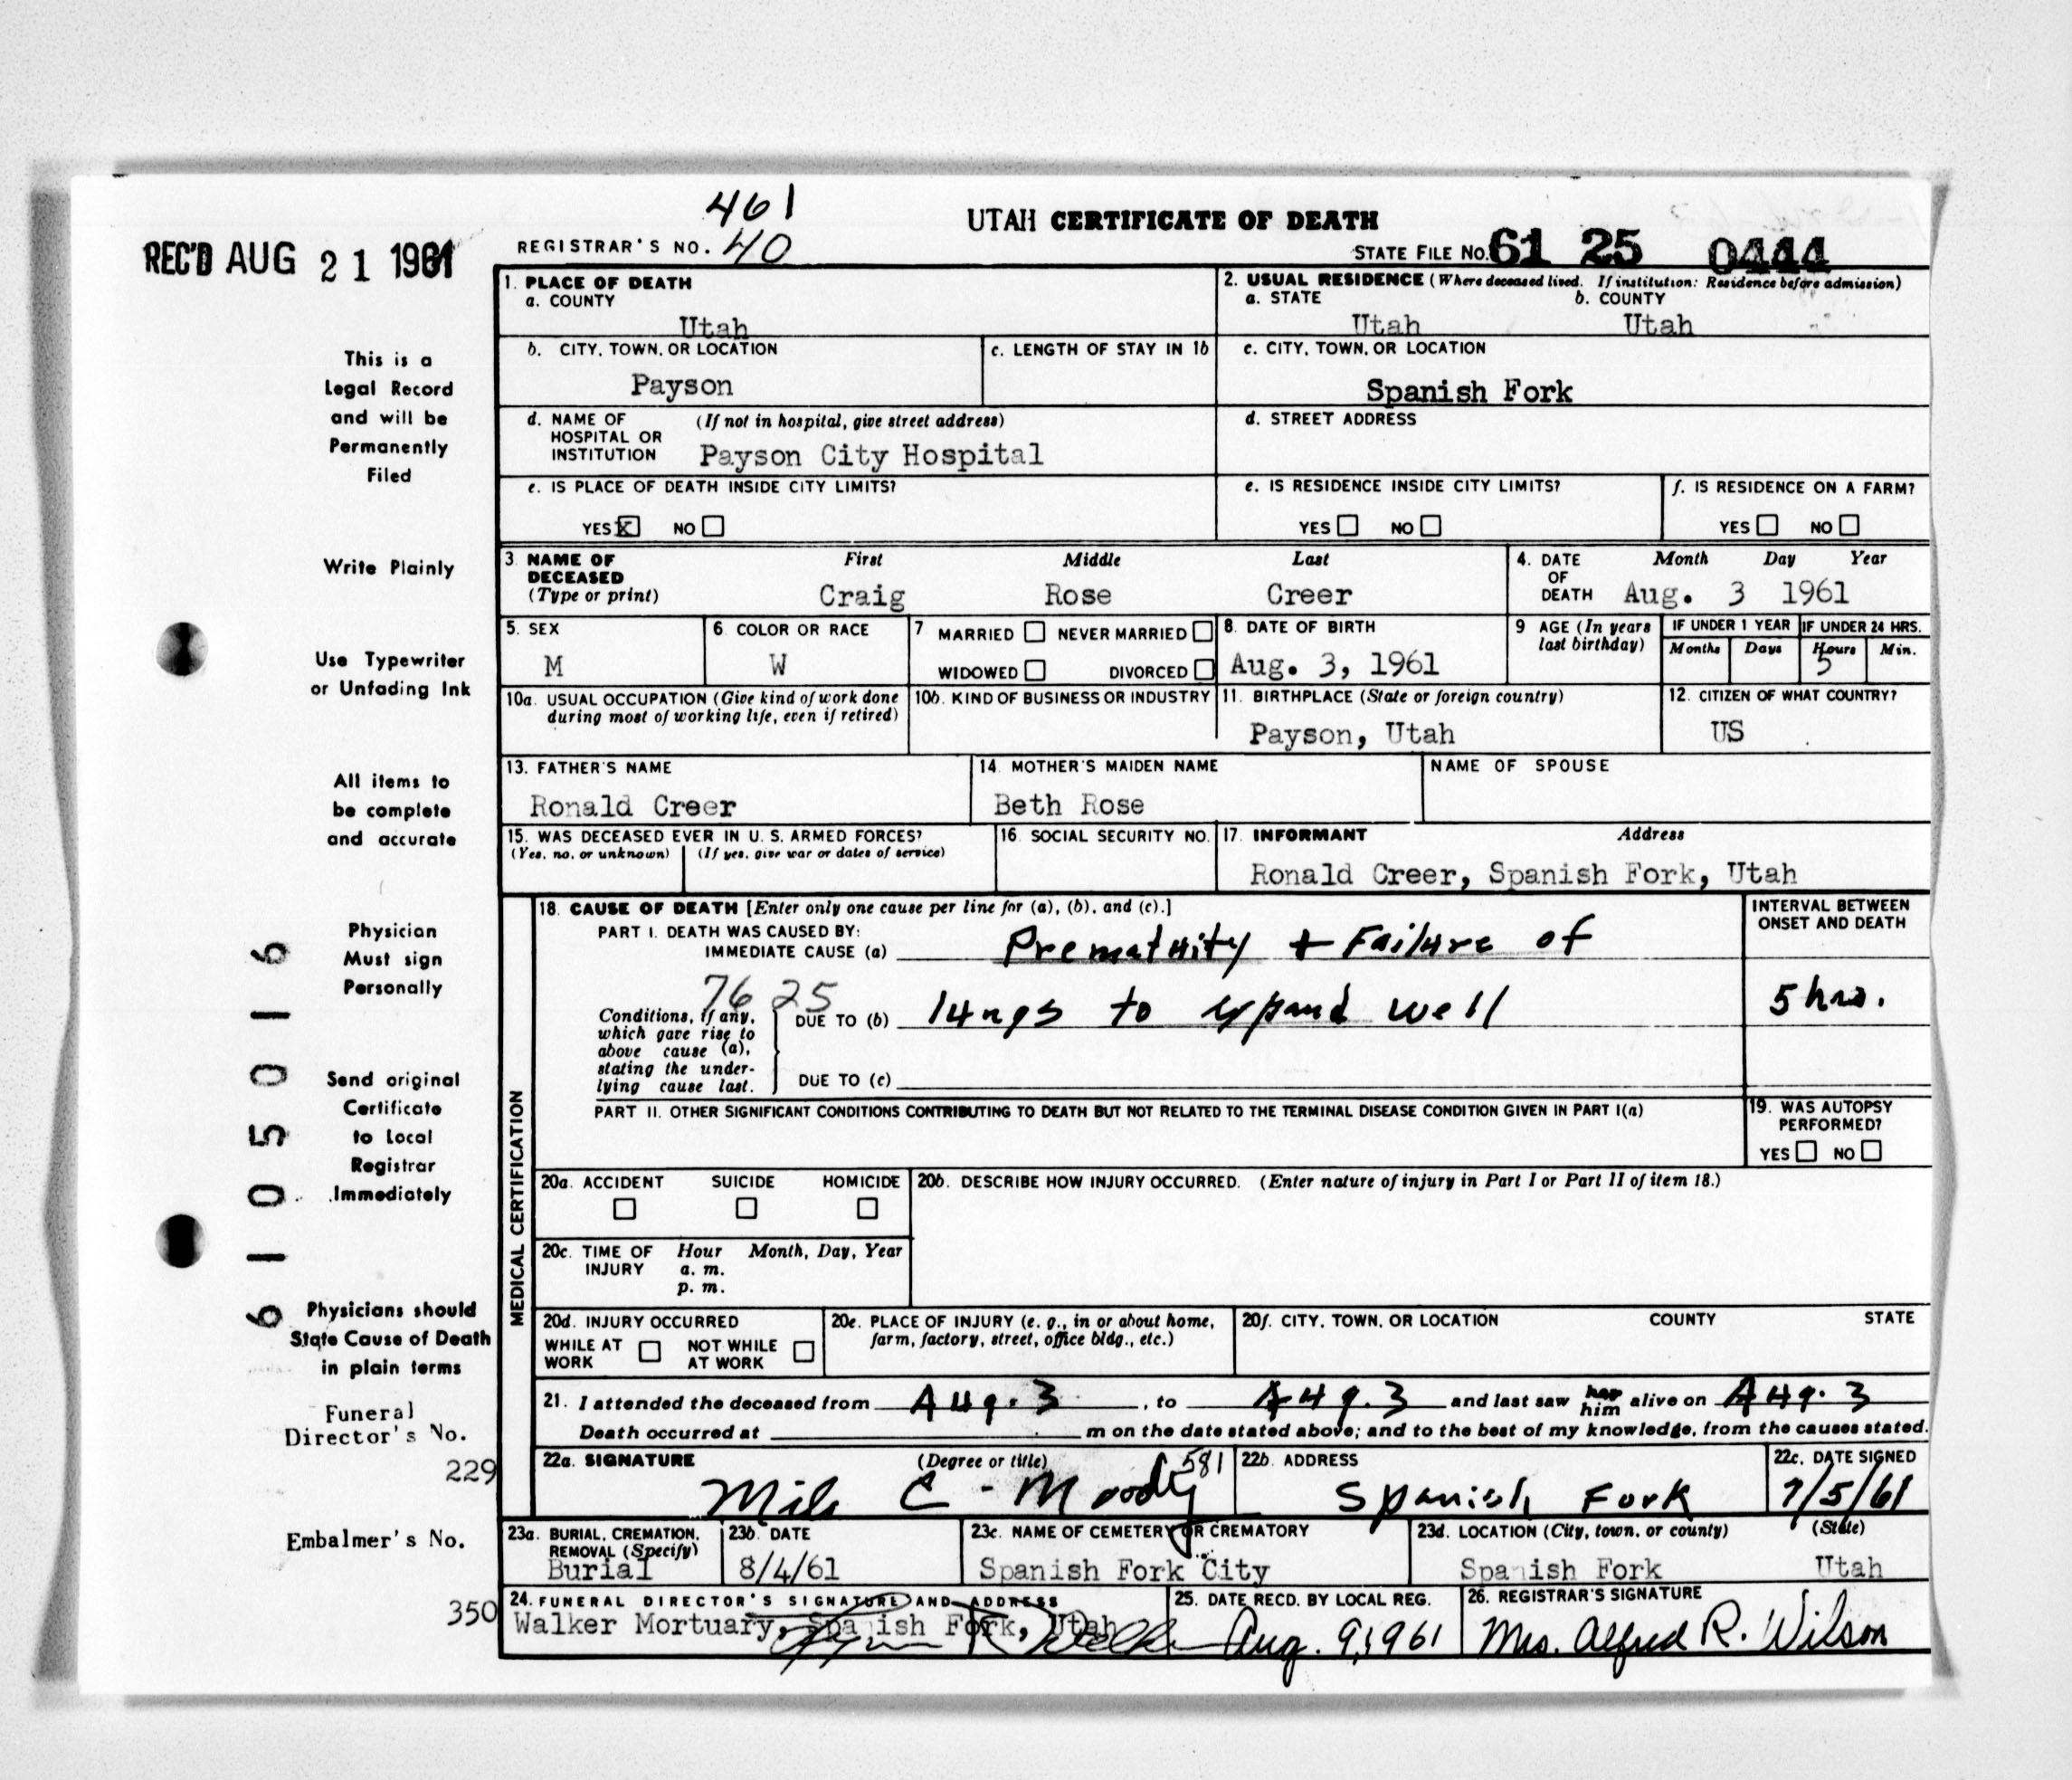 461
UTAH CERTIFICATE OF DEATH
REC'D AUG 21 1961
REGISTRAR'S NO. 40
STATE FILE NO. 61 25 0444
1. PLACE OF DEATH
a. COUNTY
Utah
2. USUAL RESIDENCE (Where deceased lived. If institution: Residence before admission)
a. STATE b. COUNTY
Utah Utah
b. CITY, TOWN, OR LOCATION
Payson
c. LENGTH OF STAY IN 1b
c. CITY, TOWN, OR LOCATION
Spanish Fork
d. NAME OF HOSPITAL OR INSTITUTION (If not in hospital, give street address)
Payson City Hospital
d. STREET ADDRESS
e. IS PLACE OF DEATH INSIDE CITY LIMITS?
YES X NO
e. IS RESIDENCE INSIDE CITY LIMITS?
YES NO
f. IS RESIDENCE ON A FARM?
YES NO
3. NAME OF DECEASED (Type or print)
First Middle Last
Craig Rose Creer
4. DATE OF DEATH Month Day Year
Aug. 3 1961
5. SEX
M
6. COLOR OR RACE
W
7. MARRIED NEVER MARRIED
WIDOWED DIVORCED
8. DATE OF BIRTH
Aug. 3, 1961
9. AGE (In years last birthday)
IF UNDER 1 YEAR IF UNDER 24 HRS.
Months Days Hours Min.
5
10a. USUAL OCCUPATION (Give kind of work done during most of working life, even if retired)
10b. KIND OF BUSINESS OR INDUSTRY
11. BIRTHPLACE (State or foreign country)
Payson, Utah
12. CITIZEN OF WHAT COUNTRY?
US
13. FATHER'S NAME
Ronald Creer
14. MOTHER'S MAIDEN NAME
Beth Rose
NAME OF SPOUSE
15. WAS DECEASED EVER IN U. S. ARMED FORCES?
(Yes, no, or unknown) (If yes, give war or dates of service)
16. SOCIAL SECURITY NO.
17. INFORMANT Address
Ronald Creer, Spanish Fork, Utah
MEDICAL CERTIFICATION
18. CAUSE OF DEATH [Enter only one cause per line for (a), (b), and (c).]
PART I. DEATH WAS CAUSED BY:
IMMEDIATE CAUSE (a) Prematurity + Failure of
76 25
Conditions, if any, which gave rise to above cause (a), stating the underlying cause last.
DUE TO (b) lungs to expand well
DUE TO (c)
INTERVAL BETWEEN ONSET AND DEATH
5 hrs.
PART II. OTHER SIGNIFICANT CONDITIONS CONTRIBUTING TO DEATH BUT NOT RELATED TO THE TERMINAL DISEASE CONDITION GIVEN IN PART I(a)
19. WAS AUTOPSY PERFORMED?
YES NO
20a. ACCIDENT SUICIDE HOMICIDE
20b. DESCRIBE HOW INJURY OCCURRED. (Enter nature of injury in Part I or Part II of item 18.)
20c. TIME OF INJURY Hour Month, Day, Year
a. m.
p. m.
20d. INJURY OCCURRED
WHILE AT WORK NOT WHILE AT WORK
20e. PLACE OF INJURY (e. g., in or about home, farm, factory, street, office bldg., etc.)
20f. CITY, TOWN, OR LOCATION COUNTY STATE
21. I attended the deceased from Aug. 3, to Aug. 3 and last saw her him alive on Aug. 3
Death occurred at m on the date stated above; and to the best of my knowledge, from the causes stated.
22a. SIGNATURE (Degree or title) 581
Milo C - Moody
22b. ADDRESS
Spanish Fork
22c. DATE SIGNED
7/5/61
23a. BURIAL, CREMATION, REMOVAL (Specify)
Burial
23b. DATE
8/4/61
23c. NAME OF CEMETERY OR CREMATORY
Spanish Fork City
23d. LOCATION (City, town, or county) (State)
Spanish Fork Utah
24. FUNERAL DIRECTOR'S SIGNATURE AND ADDRESS
Walker Mortuary, Spanish Fork, Utah
25. DATE RECD. BY LOCAL REG.
Aug. 9, 1961
26. REGISTRAR'S SIGNATURE
Mrs. Alfred R. Wilson
This is a
Legal Record
and will be
Permanently
Filed
Write Plainly
Use Typewriter
or Unfading Ink
All items to
be complete
and accurate
Physician
Must sign
Personally
Send original
Certificate
to Local
Registrar
Immediately
Physicians should
State Cause of Death
in plain terms
Funeral
Director's No.
229
Embalmer's No.
350
6105016